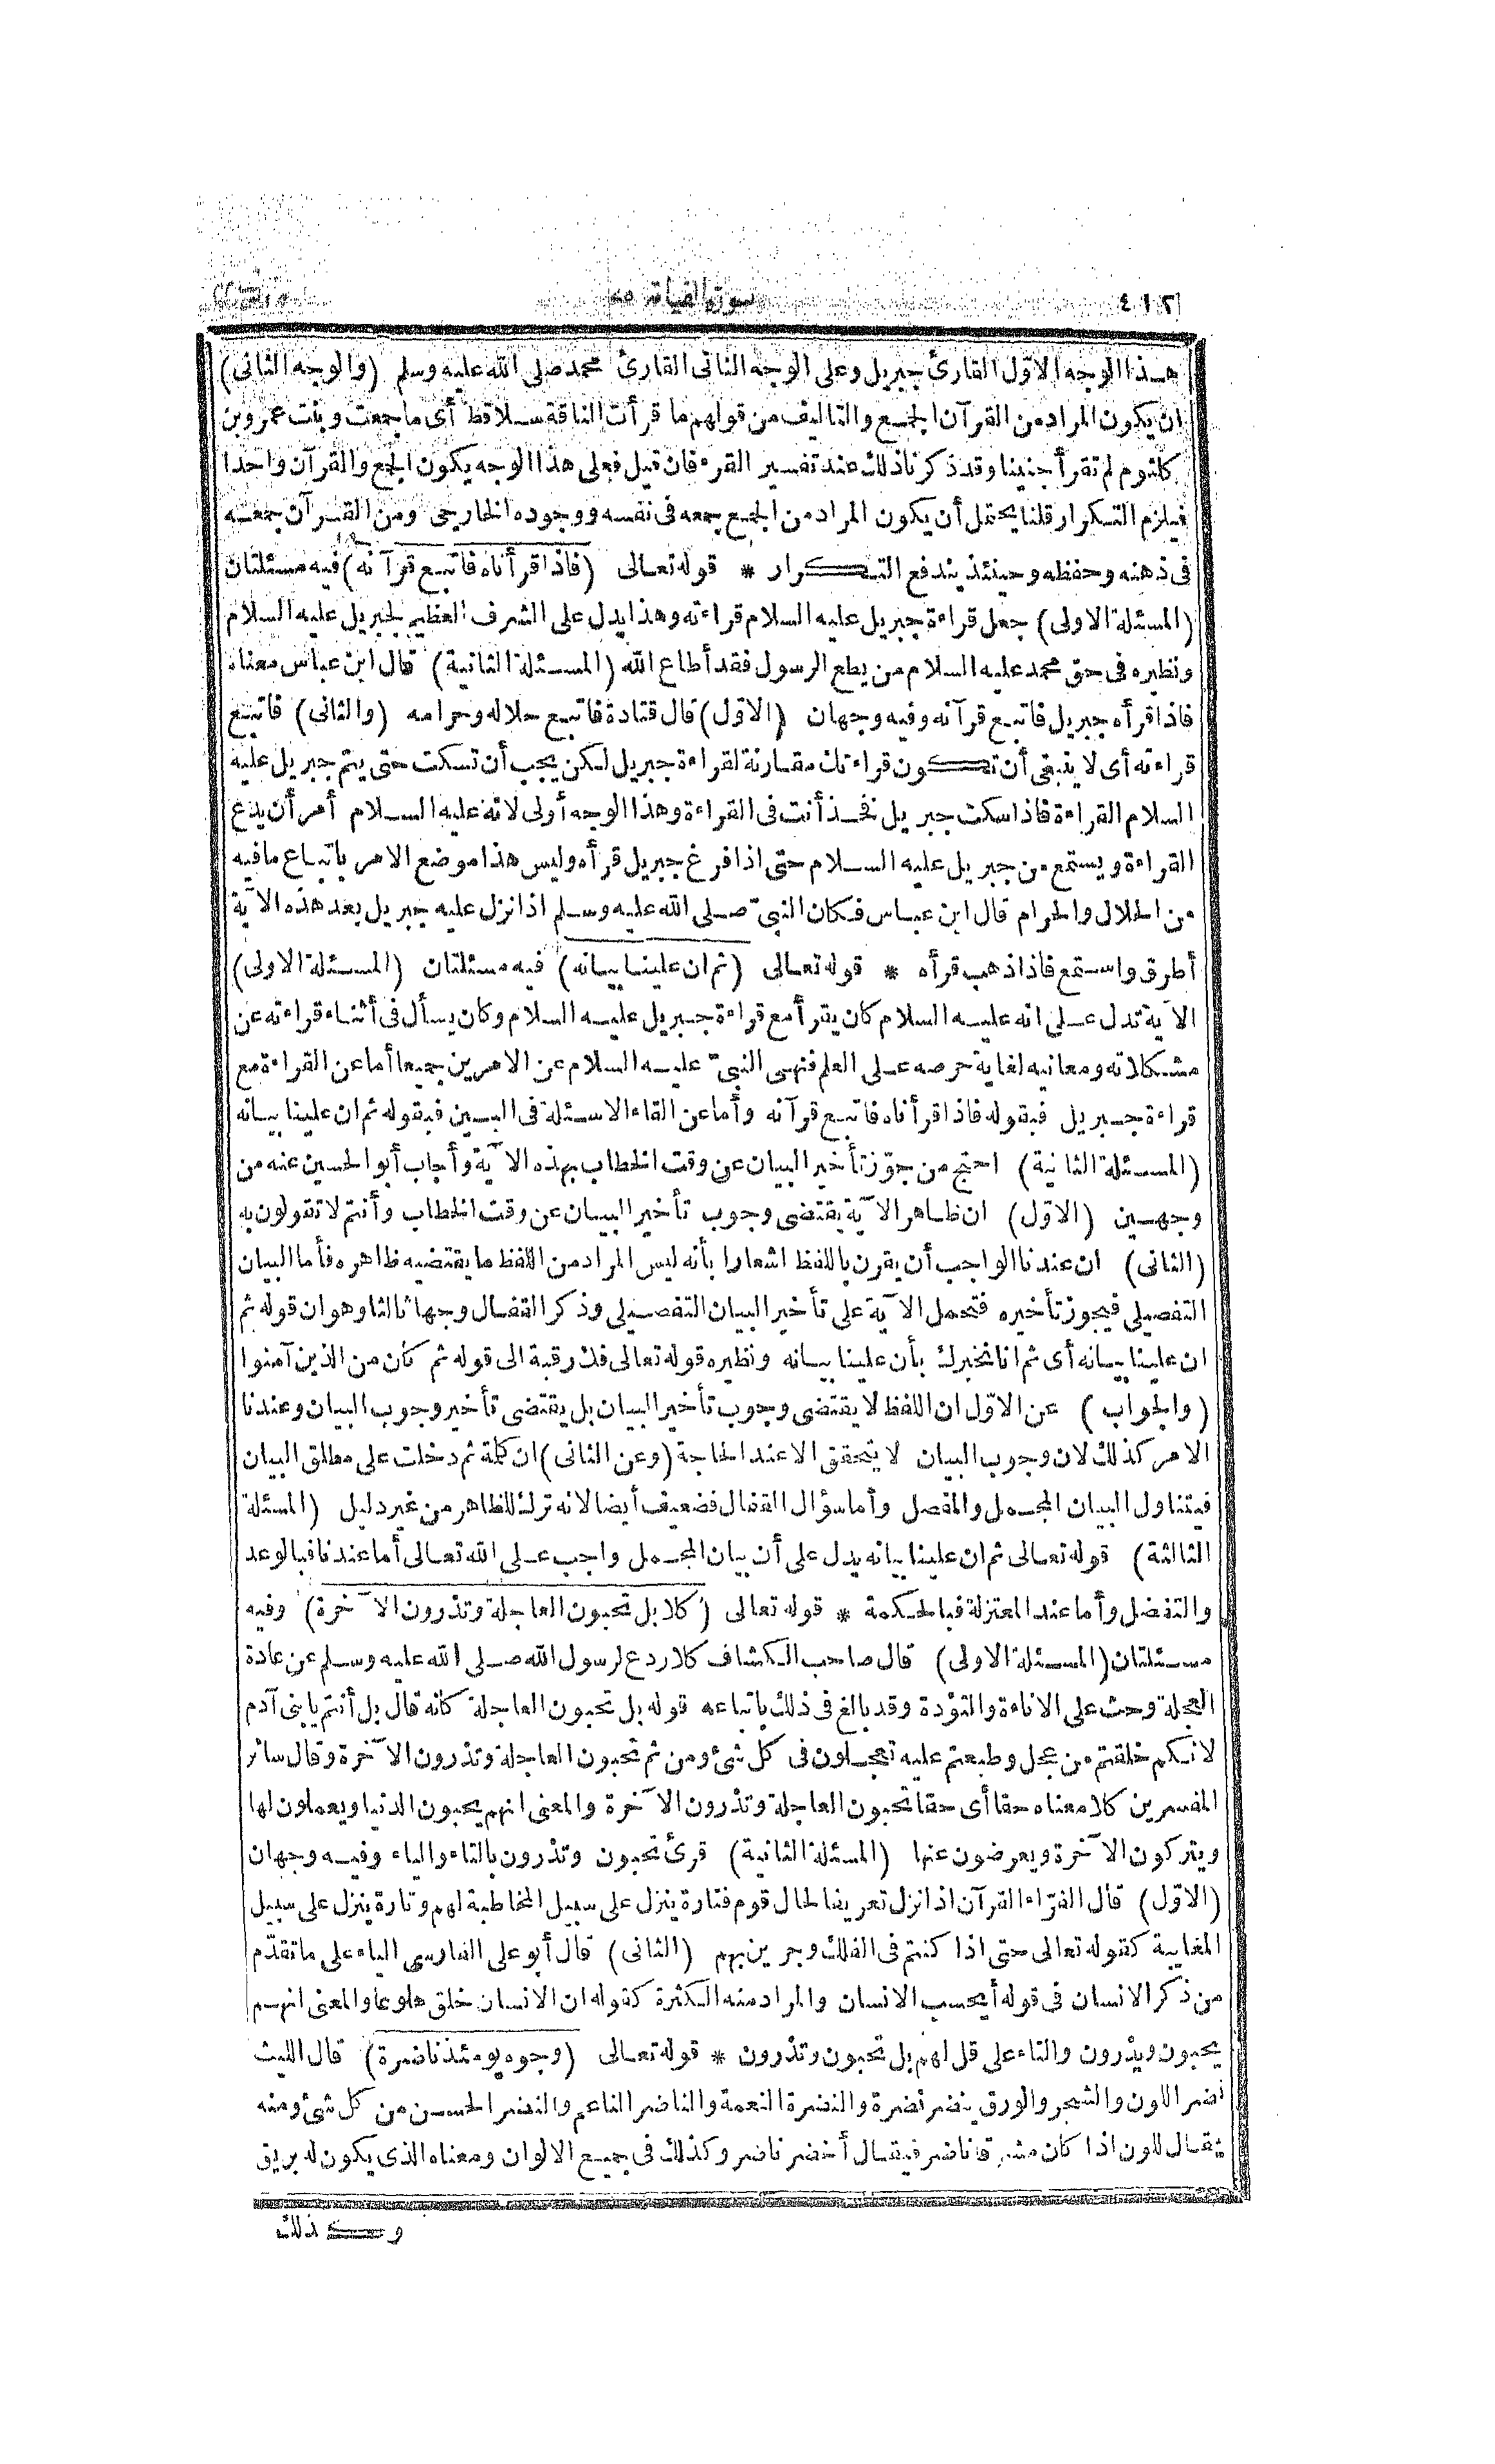 ٤١٢ سورة القيامة
هذا الوجه الاوّل القارئ جبريل وعلى الوجه الثانى القارئ محمد صلى الله عليه وسلم (والوجه الثانى)
ان يكون المراد من القرآن الجمع والتاليف من قولهم ما قرأت الناقة سلا قط أى ما جمعت وبنت عمرو بن
كلثوم لم تقرأ جنينا وقد ذكرنا ذلك عند تفسير القرء فان قيل فعلى هذا الوجه يكون الجمع والقرآن واحدا
فيلزم التكرار قلنا يحتمل أن يكون المراد من الجمع جمعه فى نفسه ووجوده الخارجى ومن القرآن جمعه
فى ذهنه وحفظه وحينئذ يندفع التكرار * قوله تعالى (فاذا قرأناه فاتبع قرآنه) فيه مسئلتان
(المسئلة الاولى) جعل قراءة جبريل عليه السلام قراءته وهذا يدل على الشرف العظيم لجبريل عليه السلام
ونظيره فى حق محمد عليه السلام من يطع الرسول فقد أطاع الله (المسئلة الثانية) قال ابن عباس معناه
فاذا قرأه جبريل فاتبع قرآنه وفيه وجهان (الاوّل) قال قتادة فاتبع حلاله وحرامه (والثانى) فاتبع
قراءته أى لا ينبغى أن تكون قراءتك مقارنة لقراءة جبريل لكن يجب أن تسكت حتى يتم جبريل عليه
السلام القراءة فاذا سكت جبريل نفخذ أنت فى القراءة وهذا الوجه أولى لانه عليه السلام أمر أن يدع
القراءة ويستمع من جبريل عليه السلام حتى اذا فرغ جبريل قرأه وليس هذا موضع الامر باتباع ما فيه
من الحلال والحرام قال ابن عباس فكان النبىّ صلى الله عليه وسلم اذا نزل عليه جبريل بعد هذه الآية
أطرق واستمع فاذا ذهب قرأه * قوله تعالى (ثم ان علينا بيانه) فيه مسئلتان (المسئلة الاولى)
الآية تدل على انه عليه السلام كان يقرأ مع قراءة جبريل عليه السلام وكان يسأل فى أثناء قراءته عن
مشكلاته ومعانيه لغاية حرصه على العلم فنهى النبىّ عليه السلام عن الامرين جميعا أما عن القراءة مع
قراءة جبريل فبقوله فاذا قرأناه فاتبع قرآنه وأما عن القاء الاسئلة فى البين فبقوله ثم ان علينا بيانه
(المسئلة الثانية) احتج من جوّز تأخير البيان عن وقت الخطاب بهذه الآية وأجاب أبو الحسين عنه من
وجهين (الاوّل) ان ظاهر الآية يقتضى وجوب تأخير البيان عن وقت الخطاب وأنتم لا تقولون به
(الثانى) ان عندنا الواجب أن يقرن باللفظ اشعارا بأنه ليس المراد من اللفظ ما يقتضيه ظاهره فأما البيان
التفصيلى فيجوز تأخيره فتحمل الآية على تأخير البيان التفصيلى وذكر القفال وجها ثالثا وهو ان قوله ثم
ان علينا بيانه أى ثم انا نخبرك بأن علينا بيانه ونظيره قوله تعالى فك رقبة الى قوله ثم كان من الذين آمنوا
(والجواب) عن الاوّل ان اللفظ لا يقتضى وجوب تأخير البيان بل يقتضى تأخير وجوب البيان وعندنا
الامر كذلك لان وجوب البيان لا يتحقق الا عند الحاجة (وعن الثانى) ان كلمة ثم دخلت على مطلق البيان
فيتناول البيان المجمل والمفصل وأما سؤال القفال فضعيف أيضا لانه ترك للظاهر من غير دليل (المسئلة
الثالثة) قوله تعالى ثم ان علينا بيانه يدل على أن بيان المجمل واجب على الله تعالى أما عندنا فبالوعد
والتفضل وأما عند المعتزلة فبالحكمة * قوله تعالى (كلا بل تحبون العاجلة وتذرون الآخرة) وفيه
مسئلتان (المسئلة الاولى) قال صاحب الكشاف كلا ردع لرسول الله صلى الله عليه وسلم عن عادة
العجلة وحث على الاناءة والتؤدة وقد بالغ فى ذلك باتباعه قوله بل تحبون العاجلة كأنه قال بل أنتم يا بنى آدم
لانكم خلقتم من عجل وطبعتم عليه تعجلون فى كل شئ ومن ثم تحبون العاجلة وتذرون الآخرة وقال سائر
المفسرين كلا معناه حقا أى حقا تحبون العاجلة وتذرون الآخرة والمعنى انهم يحبون الدنيا ويعملون لها
ويتركون الآخرة ويعرضون عنها (المسئلة الثانية) قرئ تحبون وتذرون بالتاء والياء وفيه وجهان
(الاوّل) قال الفرّاء القرآن اذا نزل تعريفا لحال قوم فتارة ينزل على سبيل المخاطبة لهم وتارة ينزل على سبيل
المغايبة كقوله تعالى حتى اذا كنتم فى الفلك وجرين بهم (الثانى) قال أبو على الفارسى الياء على ما تقدّم
من ذكر الانسان فى قوله أيحسب الانسان والمراد منه الكثرة كقوله ان الانسان خلق هلوعا والمعنى انهم
يحبون ويذرون والتاء على قل لهم بل تحبون وتذرون * قوله تعالى (وجوه يومئذ ناضرة) قال الليث
نضر اللون والشجر والورق ينضر نضرة والنضرة النعمة والناضر الناعم والنضر الحسن من كل شئ ومنه
يقال للون اذا كان مشرقا ناضر فيقال أخضر ناضر وكذلك فى جميع الالوان ومعناه الذى يكون له بريق
وكذلك